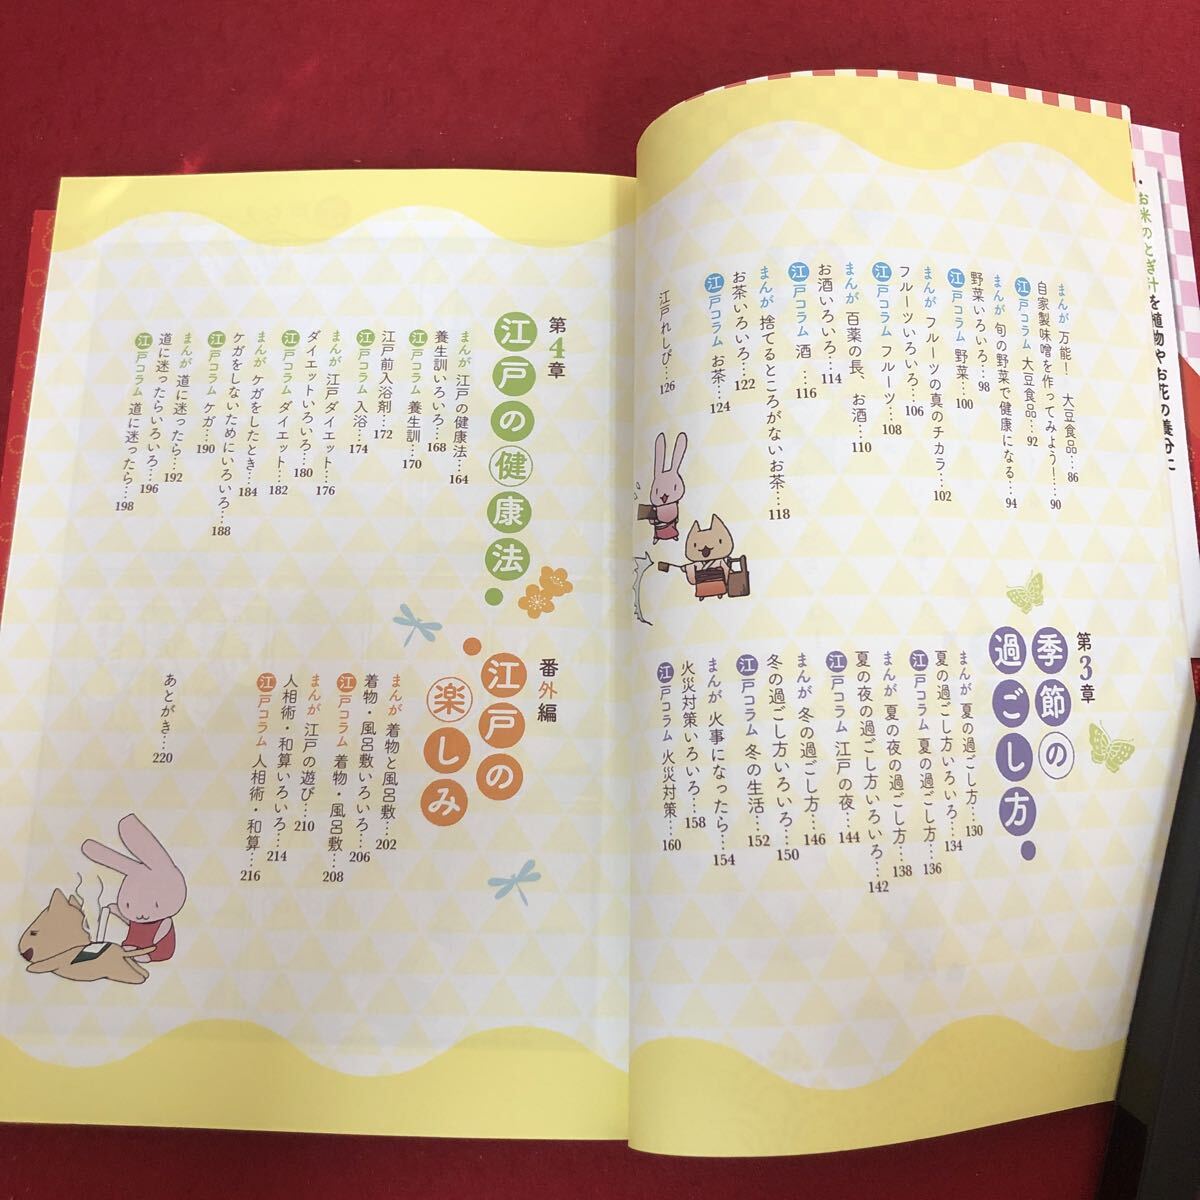 ・お米のとぎ汁を植物やお花の養分に
まんが 万能！ 大豆食品…86
自家製味噌を作ってみよう！…90
江戸コラム 大豆食品…92
まんが 旬の野菜で健康になる…94
野菜いろいろ…98
江戸コラム 野菜…100
まんが フルーツの真のチカラ…102
フルーツいろいろ…106
江戸コラム フルーツ…108
まんが 百薬の長、お酒…110
お酒いろいろ…114
江戸コラム 酒…116
まんが 捨てるところがないお茶…118
お茶いろいろ…122
江戸コラム お茶…124
江戸れしぴ…126
第3章
季節の過ごし方
まんが 夏の過ごし方…130
夏の過ごし方いろいろ…134
江戸コラム 夏の過ごし方…136
まんが 夏の夜の過ごし方…138
夏の夜の過ごし方いろいろ…142
江戸コラム 江戸の夜…144
まんが 冬の過ごし方…146
冬の過ごし方いろいろ…150
江戸コラム 冬の生活…152
まんが 火事になったら…154
火災対策いろいろ…158
江戸コラム 火災対策…160
第4章
江戸の健康法
まんが 江戸の健康法…164
養生訓いろいろ…168
江戸コラム 養生訓…170
江戸前入浴剤…172
江戸コラム 入浴…174
まんが 江戸ダイエット…176
ダイエットいろいろ…180
江戸コラム ダイエット…182
まんが ケガをしたとき…184
ケガをしないためにいろいろ…188
江戸コラム ケガ…190
まんが 道に迷ったら…192
道に迷ったらいろいろ…196
江戸コラム 道に迷ったら…198
番外編
江戸の楽しみ
まんが 着物と風呂敷…202
着物・風呂敷いろいろ…206
江戸コラム 着物・風呂敷…208
まんが 江戸の遊び…210
人相術・和算いろいろ…214
江戸コラム 人相術・和算…216
あとがき…220